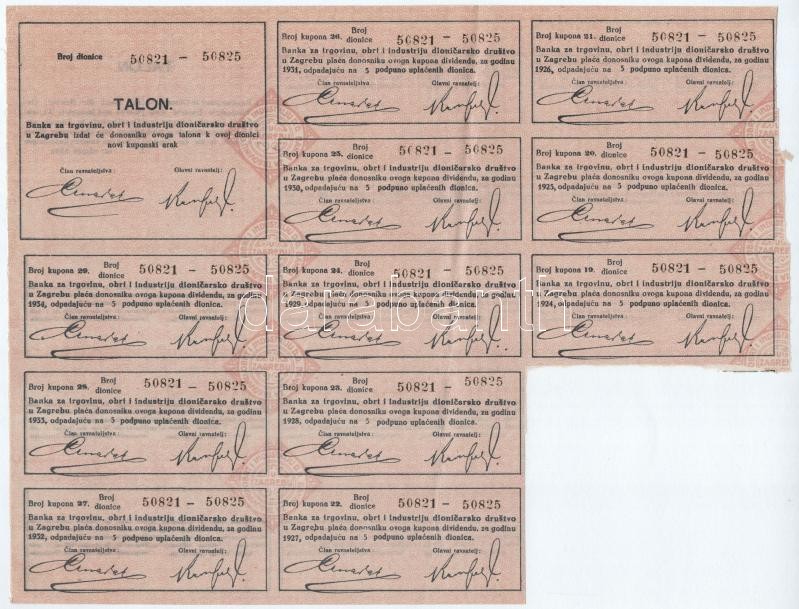 Broj dionice 50821 — 50825
TALON.
Banka za trgovinu, obrt i industriju dioničarsko društvo
u Zagrebu izdat će donosniku ovoga talona k ovoj dionici
novi kuponski arak
Član ravnateljstva: Glavni ravnatelj:
Broj kupona 26. Broj dionice 50821 — 50825
Banka za trgovinu, obrt i industriju dioničarsko društvo
u Zagrebu plaća donosniku ovoga kupona dividendu, za godinu
1931, odpadajuću na 5 podpuno uplaćenih dionica.
Član ravnateljstva: Glavni ravnatelj:
Broj kupona 21. Broj dionice 50821 — 50825
Banka za trgovinu, obrt i industriju dioničarsko društvo
u Zagrebu plaća donosniku ovoga kupona dividendu, za godinu
1926, odpadajuću na 5 podpuno uplaćenih dionica.
Član ravnateljstva: Glavni ravnatelj:
Broj kupona 25. Broj dionice 50821 — 50825
Banka za trgovinu, obrt i industriju dioničarsko društvo
u Zagrebu plaća donosniku ovoga kupona dividendu, za godinu
1930, odpadajuću na 5 podpuno uplaćenih dionica.
Član ravnateljstva: Glavni ravnatelj:
Broj kupona 20. Broj dionice 50821 — 50825
Banka za trgovinu, obrt i industriju dioničarsko društvo
u Zagrebu plaća donosniku ovoga kupona dividendu, za godinu
1925, odpadajuću na 5 podpuno uplaćenih dionica.
Član ravnateljstva: Glavni ravnatelj:
Broj kupona 29. Broj dionice 50821 — 50825
Banka za trgovinu, obrt i industriju dioničarsko društvo
u Zagrebu plaća donosniku ovoga kupona dividendu, za godinu
1934, odpadajuću na 5 podpuno uplaćenih dionica.
Član ravnateljstva: Glavni ravnatelj:
Broj kupona 24. Broj dionice 50821 — 50825
Banka za trgovinu, obrt i industriju dioničarsko društvo
u Zagrebu plaća donosniku ovoga kupona dividendu, za godinu
1929, odpadajuću na 5 podpuno uplaćenih dionica.
Član ravnateljstva: Glavni ravnatelj:
Broj kupona 19. Broj dionice 50821 — 50825
Banka za trgovinu, obrt i industriju dioničarsko društvo
u Zagrebu plaća donosniku ovoga kupona dividendu, za godinu
1924, odpadajuću na 5 podpuno uplaćenih dionica.
Član ravnateljstva: Glavni ravnatelj:
darabanth
Broj kupona 28. Broj dionice 50821 — 50825
Banka za trgovinu, obrt i industriju dioničarsko društvo
u Zagrebu plaća donosniku ovoga kupona dividendu, za godinu
1933, odpadajuću na 5 podpuno uplaćenih dionica.
Član ravnateljstva: Glavni ravnatelj:
Broj kupona 23. Broj dionice 50821 — 50825
Banka za trgovinu, obrt i industriju dioničarsko društvo
u Zagrebu plaća donosniku ovoga kupona dividendu, za godinu
1928, odpadajuću na 5 podpuno uplaćenih dionica.
Član ravnateljstva: Glavni ravnatelj:
Broj kupona 27. Broj dionice 50821 — 50825
Banka za trgovinu, obrt i industriju dioničarsko društvo
u Zagrebu plaća donosniku ovoga kupona dividendu, za godinu
1932, odpadajuću na 5 podpuno uplaćenih dionica.
Član ravnateljstva: Glavni ravnatelj:
Broj kupona 22. Broj dionice 50821 — 50825
Banka za trgovinu, obrt i industriju dioničarsko društvo
u Zagrebu plaća donosniku ovoga kupona dividendu, za godinu
1927, odpadajuću na 5 podpuno uplaćenih dionica.
Član ravnateljstva: Glavni ravnatelj: